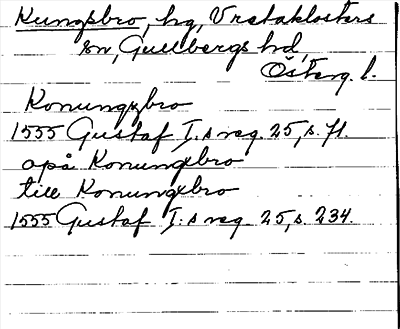 Kungsbro, hg, Vretaklosters
sn, Gullbergs hd,
Österg. l.
Konungzbro
1555 Gustaf I:s reg. 25, s. 71.
opå Konungxbro
till Konungxbro
1555 Gustaf I:s reg. 25, s. 234.